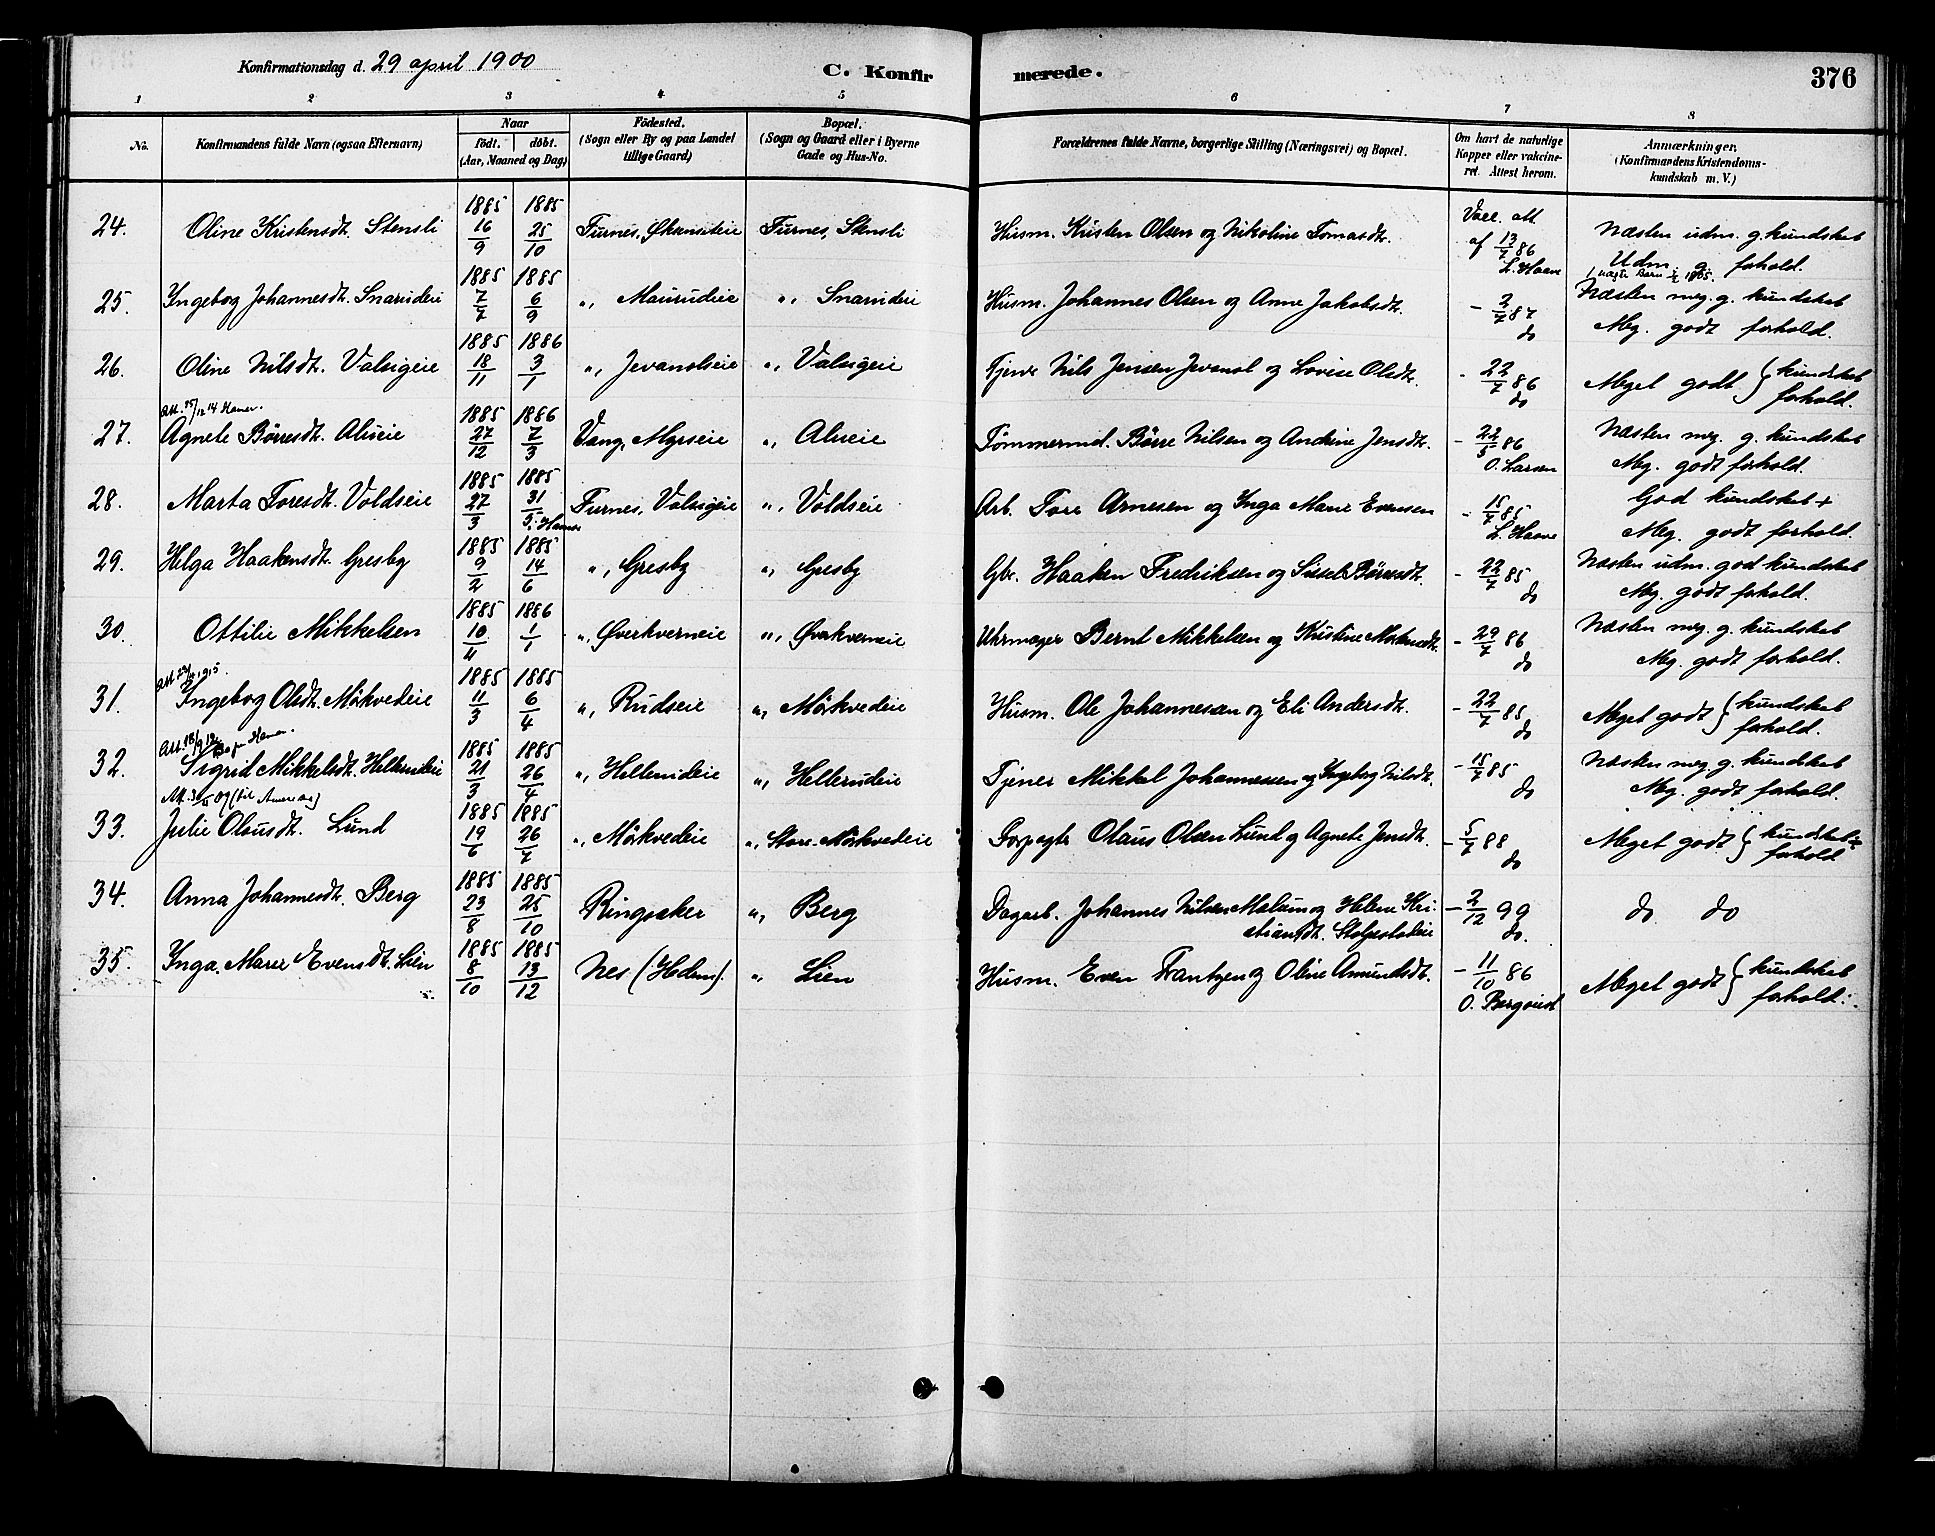 Konfirmationsdag d. 29 april 1900 C. Konfirmerede. 376
1 2 3 4 5 6 7 8
No. Konfirmandens fulde Navn (ogsaa Efternavn) Naar født. døbt. (Aar, Maaned og Dag) Fødested. (Sogn eller By og paa Landet tillige Gaard) Bopæl. (Sogn og Gaard eller i Byerne Gade og Hus-No. Forældrenes fulde Navne, borgerlige Stilling (Næringsvei) og Bopæl. Om havt de naturlige Kopper eller vakcineret. Attest herom. Anmærkninger. (Konfirmandens Kristendomskundskab m. V.)
24. Oline Kristensdt. Stensli 1885 16/9 1885 25/10 Furnes, Furnes, Stensli Husm. Kristen Olsen og Nikoline Tomasdt. Vacc. att af 13/7 86 L. Haave Næsten udm. g. kundskab Udm. g. forhold.
25. Ingebog Johannesdt. Snarudeie 1885 7/7 1885 6/9 " Maurudeie " Snarudeie Husm. Johannes Olsen og Anne Jakobsdt. - 2/7 87 do Næsten meg. g. kundskab Meg. godt forhold.
26. Oline Nilsdt. Valsigeie 1885 18/11 1886 3/1 " Jevanolseie " Valsigeie Tjener Nils Jensen Jevanol og Lovise Olsdt. - 22/7 86 do Meget godt { kundskab forhold.
27. Att. 25/12 14 Hamar. Agnete Børresdt. Alueie 1885 27/12 1886 7/3 Vang, Myrseie " Alueie Tømmermd. Børre Nilsen og Andrine Jensdt. - 22/5 86 O. Larsen Næsten meg. g. kundskab Meg. godt forhold.
28. Marta Toresdt. Voldseie 1885 27/3 1885 31/5 i Hamar Furnes, Valsigeie " Voldseie Arb. Tore Arnesen og Inga Marie Evensen - 15/7 85 L. Haave God kundskab + Meg. godt forhold.
29. Helga Haakensdt. Gresby 1885 9/2 1885 14/6 " Gresby " Gresby Gbr. Haaken Fredriksen og Sissel Børresdt. - 22/7 85 do Næsten udm. god kundskab Meg. godt forhold.
30. Ottilie Mikkelsen 1885 10/4 1886 1/1 " Øverkverneie " Øverkverneie Uhrmager Bernt Mikkelsen og Kristine - 29/7 86 do Næsten meg. g. kundskab Meg. godt forhold.
31. Ingebog Olsdt. Mørkvedeie 1885 11/3 1885 6/4 " Rudseie " Mørkvedeie Husm. Ole Johannesen og Eli Andersdt. - 22/7 85 do Meget godt { kundskab forhold.
32. Sigrid Mikkelsdt. Hellerudeie 1885 21/3 1885 26/4 " Hellerudeie " Hellerudeie Tjener Mikkel Johannessen og Ingeborg Nilsdt. - 15/7 85 do Næsten meg. g. kundskab Meg. godt forhold.
33. Julie Olausdt. Lund 1885 19/6 1885 26/7 " Mørkvedeie " Store-Mørkvedeie Forpagter Olaus Olsen Lund og Agnete Jensdt. - 5/7 88 do Meget godt { kundskab + forhold
34. Anna Johannesdt. Berg 1885 23/8 1885 25/10 Ringsaker " Berg Dagarb. Johannes Nilsen Malum og Helene Kristiansdt. - 2/12 99 do. do do
35. Inga Marie Evensdt. Lien 1885 8/10 1885 13/12 Nes (Hedm). " Lien Husm. Even Frantzen og Oline Amundsdt. - 11/10 86 O. Bergsund Meget godt { kundskab forhold.